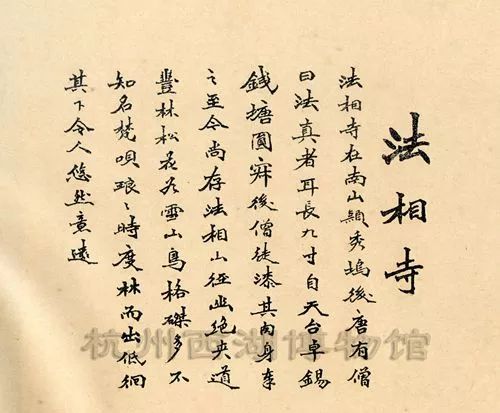 法相寺
法相寺在南山穎秀塢後唐有僧
曰法真者耳長九寸自天台卓錫
錢塘圓寂後僧徒漆其肉身奉
之至今尚存法相山徑幽絶夾道
豐林松花如雪山鳥格磔多不
知名梵唄琅〻時度林而出低徊
其下令人悠然意遠
杭州西湖博物馆